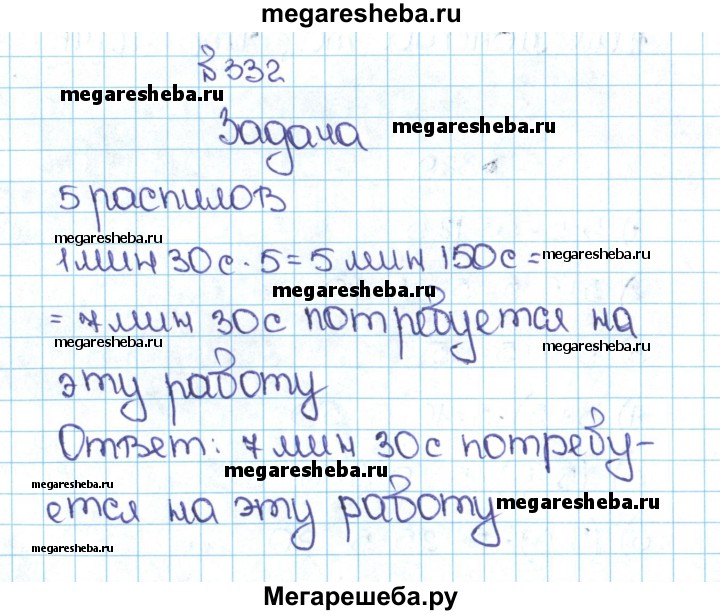 megaresheba.ru
№ 332
megaresheba.ru
Задача
megaresheba.ru
5 распилов
megaresheba.ru
1 мин 30 с · 5 = 5 мин 150 с =
megaresheba.ru
megaresheba.ru
= 7 мин 30 с потребуется на
megaresheba.ru
megaresheba.ru
эту работу
Ответ: 7 мин 30 с потребу-
megaresheba.ru
megaresheba.ru
ется на эту работу
megaresheba.ru
megaresheba.ru
Мегарешеба.ру